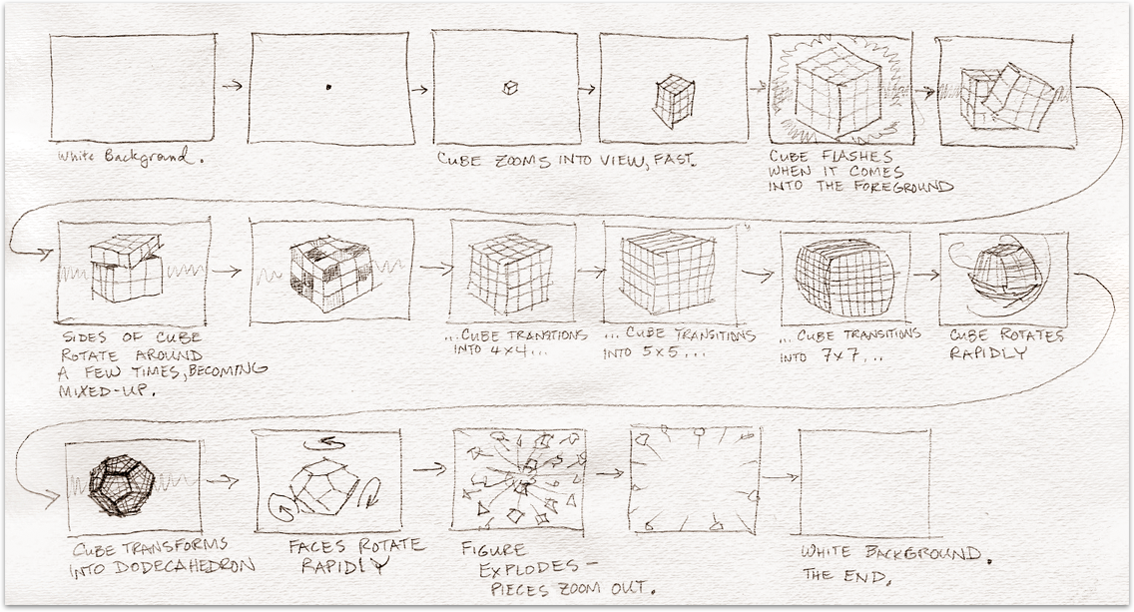 White Background.
CUBE ZOOMS INTO VIEW, FAST.
CUBE FLASHES
WHEN IT COMES
INTO THE FOREGROUND
SIDES OF CUBE
ROTATE AROUND
A FEW TIMES, BECOMING
MIXED-UP.
...CUBE TRANSITIONS
INTO 4x4...
... CUBE TRANSITIONS
INTO 5x5...
... CUBE TRANSITIONS
INTO 7x7...
CUBE ROTATES
RAPIDLY
CUBE TRANSFORMS
INTO DODECAHEDRON
FACES ROTATE
RAPIDLY
FIGURE
EXPLODES-
PIECES ZOOM OUT.
WHITE BACKGROUND.
THE END.